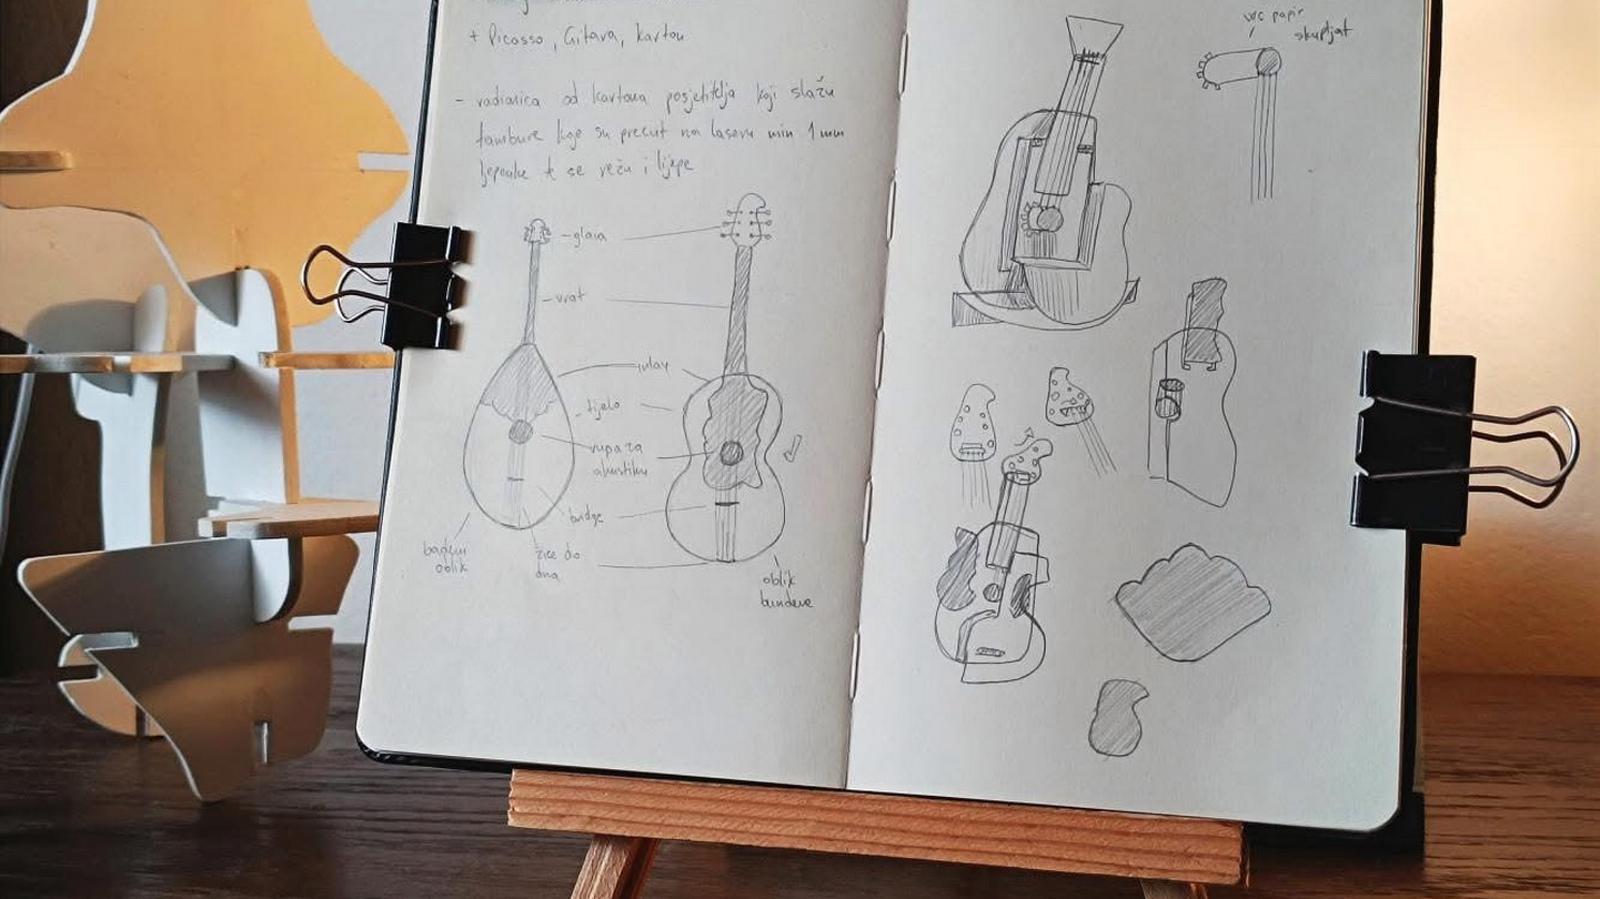 + Picasso, Gitara, karton
- radionica od kartona posjetitelja koji slažu
tambure koje su precut na laseru min 1 mm
ljepenke te se režu i lijepe
- glava
- vrat
- tijelo
rupa za
akustiku
bridge
badem
oblik
žice do
dna
oblik
bundeve
wc papir
skupljat